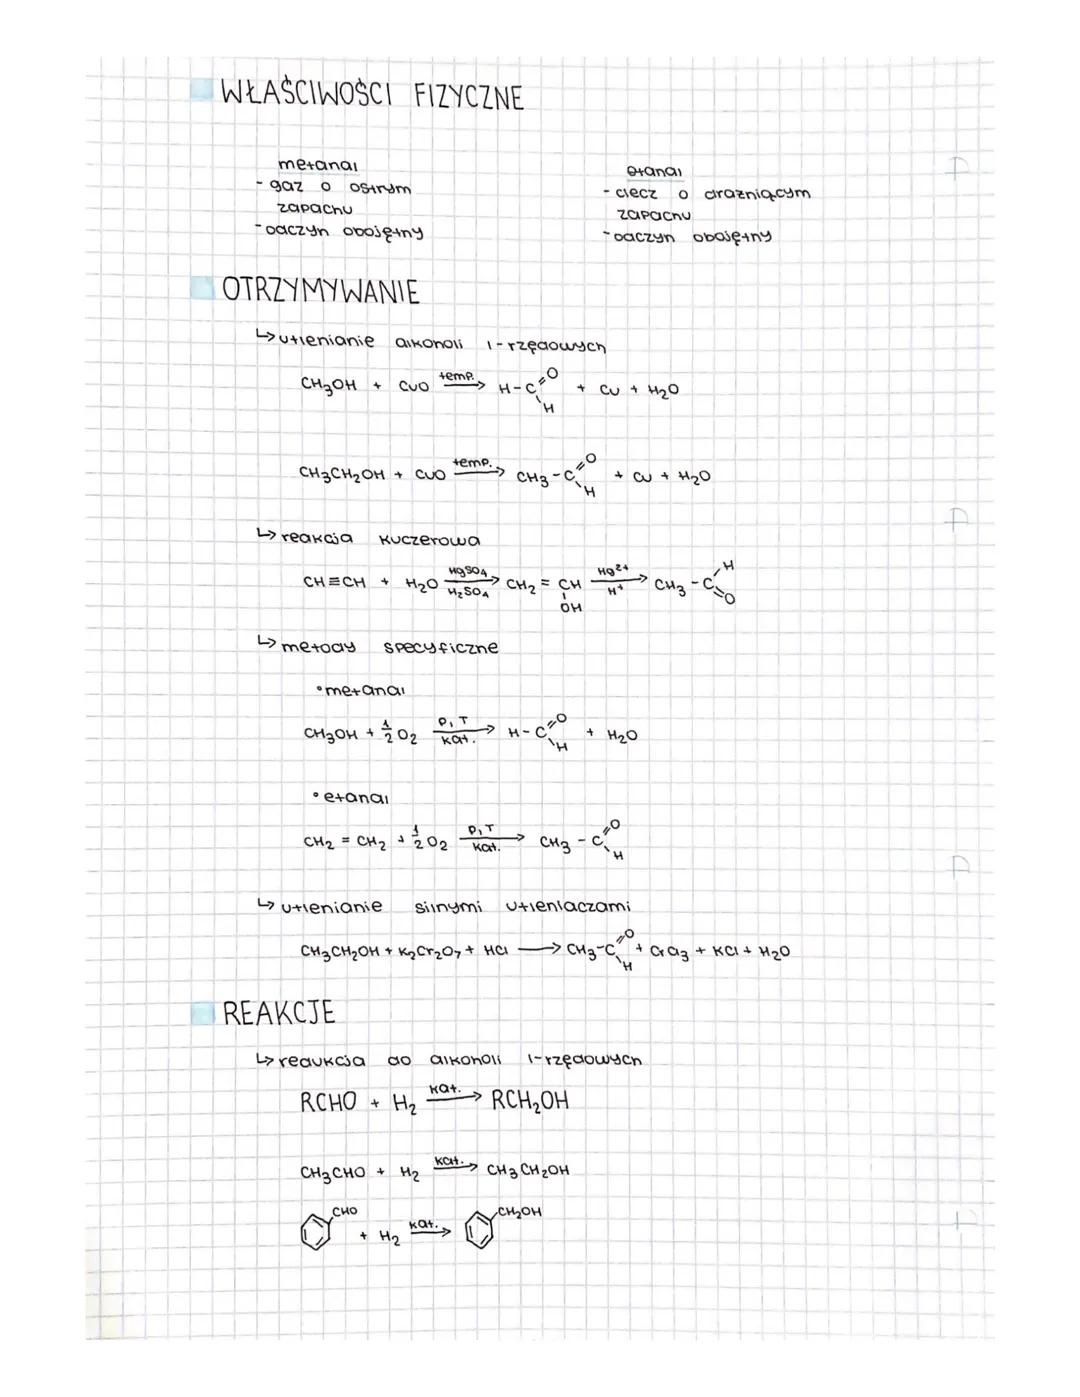 WŁAŚCIWOŚCI FIZYCZNE
metanal
- gaz o ostrym
zapachu
- odczyn obojętny
etanal
- ciecz o drażniącym
zapachu
- odczyn obojętny
OTRZYMYWANIE
↳ utlenianie alkoholi 1-rzędowych
CH₃OH + CuO temp.→ H-C=O H + Cu + H₂O
CH₃CH₂OH + CuO temp.→ CH₃-C=O H + Cu + H₂O
↳ reakcja Kuczerowa
CH≡CH + H₂O HgSO₄ H₂SO₄→ CH₂=CH OH Hg²⁺ H⁺→ CH₃-C H =O
↳ metody specyficzne
• metanal
CH₃OH + ½ O₂ p,T kat.→ H-C=O H + H₂O
• etanal
CH₂=CH₂ + ½ O₂ p,T kat.→ CH₃-C=O H
↳ utlenianie silnymi utleniaczami
CH₃CH₂OH + K₂Cr₂O₇ + HCl → CH₃-C=O H + CrCl₃ + KCl + H₂O
REAKCJE
↳ redukcja do alkoholi 1-rzędowych
RCHO + H₂ kat.→ RCH₂OH
CH₃CHO + H₂ kat.→ CH₃CH₂OH
CHO + H₂ kat.→ CH₂OH